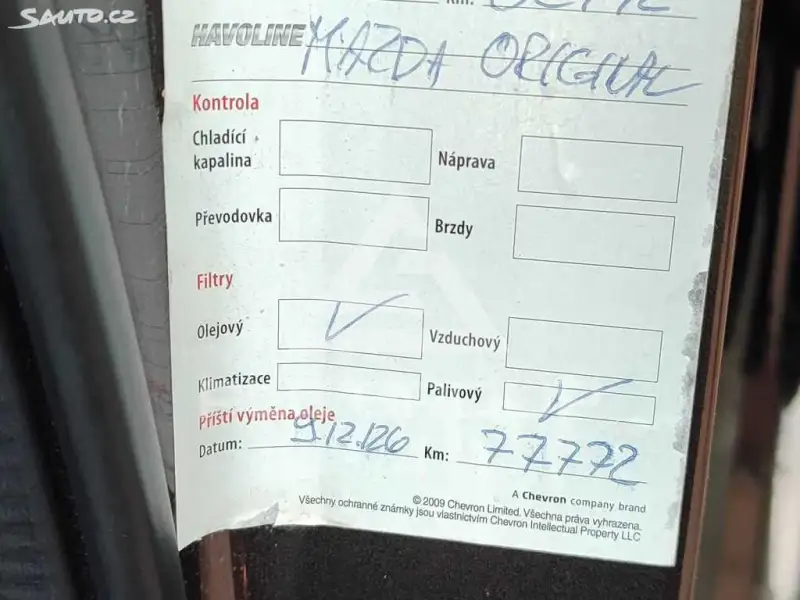 SAUTO.CZ
Km:
HAVOLINE MAZDA ORIGINAL
Kontrola
Chladící kapalina
Náprava
Převodovka
Brzdy
Filtry
Olejový
Vzduchový
Klimatizace
Palivový
Příští výměna oleje
Datum: 9.12.126 Km: 77772
A Chevron company brand
© 2009 Chevron Limited. Všechna práva vyhrazena.
Všechny ochranné známky jsou vlastnictvím Chevron Intellectual Property LLC